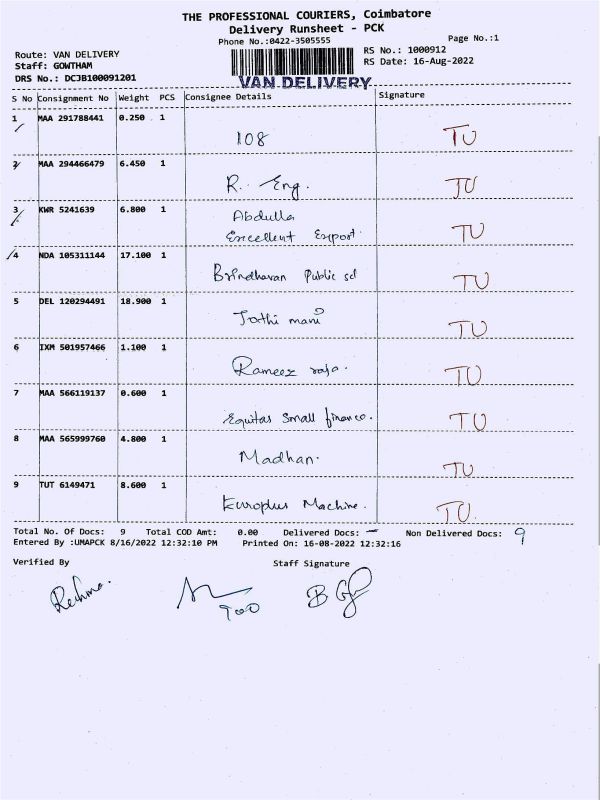 THE PROFESSIONAL COURIERS, Coimbatore
Delivery Runsheet - PCK
Phone No.:0422-3505555
Page No.:1
Route: VAN DELIVERY
RS No.: 1000912
Staff: GOWTHAM
RS Date: 16-Aug-2022
DRS No.: DCJB100091201
VAN DELIVERY
S No Consignment No Weight PCS Consignee Details Signature
1 MAA 291788441 0.250 1
108 TU
2 MAA 294466479 6.450 1
R. Eng. TU
3 KWR 5241639 6.800 1
Abdulla
Excellent Export. TU
4 NDA 105311144 17.100 1
Brindhavan Public scl TU
5 DEL 120294491 18.900 1
Jothi mani TU
6 IXM 501957466 1.100 1
Rameez raja. TU
7 MAA 566119137 0.600 1
Equitas Small finance. TU
8 MAA 565999760 4.800 1
Madhan. TU
9 TUT 6149471 8.600 1
Europlus Machine. TU
Total No. Of Docs: 9 Total COD Amt: 0.00 Delivered Docs: — Non Delivered Docs: 9
Entered By :UMAPCK 8/16/2022 12:32:10 PM Printed On: 16-08-2022 12:32:16
Verified By Staff Signature